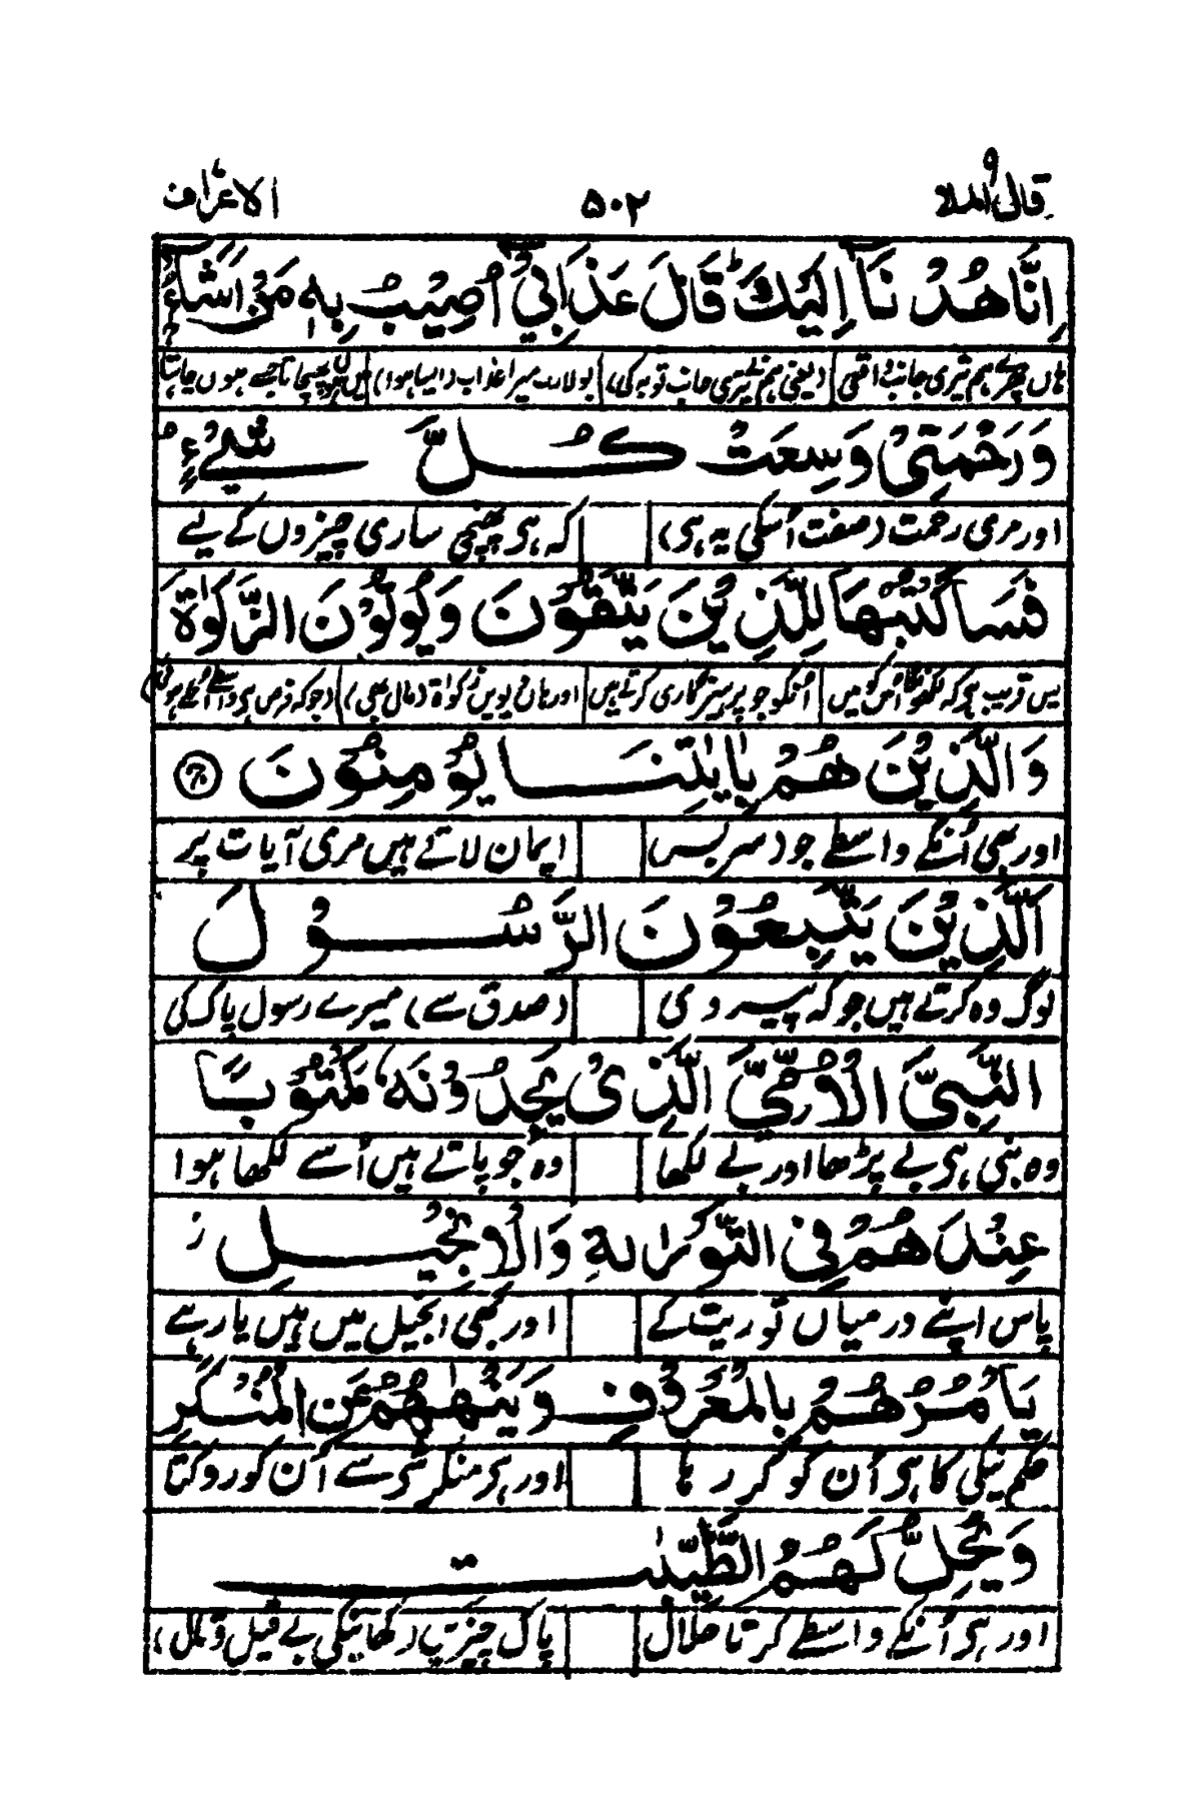 قال الملا ۹ ۵۰۲ الاعراف
اِنَّا هُدْنَاۤ اِلَیْكَ ؕ قَالَ عَذَابِیْۤ اُصِیْبُ بِهٖ مَنْ اَشَآءُ ۚ
ہاں پھرے ہم تیری جانب واقعی (یعنی ہم نے تیری جانب توبہ کی) بولا رب میرا عذاب (ایسا ہوا) میں پہنچاتا جسے ہوں چاہتا
وَ رَحْمَتِیْ وَسِعَتْ كُلَّ شَیْءٍ ؕ
اور مری رحمت (صفت اُسکی یہ ہی) کہ ہی پہنچی ساری چیزوں کے لیے
فَسَاَكْتُبُهَا لِلَّذِیْنَ یَتَّقُوْنَ وَ یُؤْتُوْنَ الزَّكٰوةَ
پس قریب ہی کہ لکھونگا اُس کو میں اُنکو جو پرہیزگاری کرتے ہیں اور ہاں دیویں زکوٰۃ (مال بھی) (جو کہ فرض ہی واسطے اُنکے ہوئی)
وَ الَّذِیْنَ هُمْ بِاٰیٰتِنَا یُؤْمِنُوْنَ
اور بھی اُنکے واسطے جو (سر بسر ایمان لاتے ہیں مری آیات پر
اَلَّذِیْنَ یَتَّبِعُوْنَ الرَّسُوْلَ
لوگ وہ کرتے ہیں جو کہ پیروی (صدق سے) میرے رسول پاک کی
النَّبِیَّ الْاُمِّیَّ الَّذِیْ یَجِدُوْنَهٗ مَكْتُوْبًا
وہ نبی ہی بے پڑھا اور بے لکھا وہ جو پاتے ہیں اُسے لکھا ہوا
عِنْدَهُمْ فِی التَّوْرٰىةِ وَ الْاِنْجِیْلِ ز
پاس اپنے درمیاں توریت کے اور بھی انجیل میں ہیں پا رہے
یَاْمُرُهُمْ بِالْمَعْرُوْفِ وَ یَنْهٰىهُمْ عَنِ الْمُنْكَرِ
حکم نیکی کا ہی اُن کو کر رہا اور ہی منکر سے اُن کو روکتا
وَ یُحِلُّ لَهُمُ الطَّیِّبٰتِ
اور ہی اُنکے واسطے کرتا حلال پاک چیزیں (کھا نیکی بے قیل و قال)